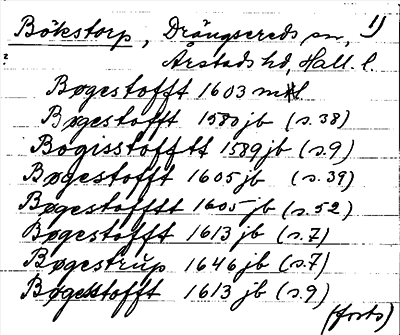 Bökstorp, Drängsereds sn, 1)
Årstads hd, Hall. l.
Bøgestofft 1603 mtl
Bøgestofft 1580 jb (s.38)
Bøgisstofftt 1589 jb (s.9)
Bøgestofft 1605 jb (s.39)
Bøgestofftt 1605 jb (s.52)
Bøgestofft 1613 jb (s.7)
Bøgestrup 1646 jb (s.7)
Bøgestofft 1613 jb (s.9)
(forts)